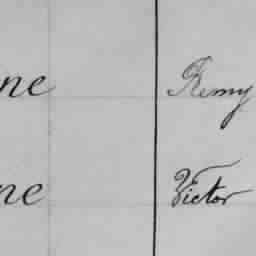 ne Remy
ne Victor